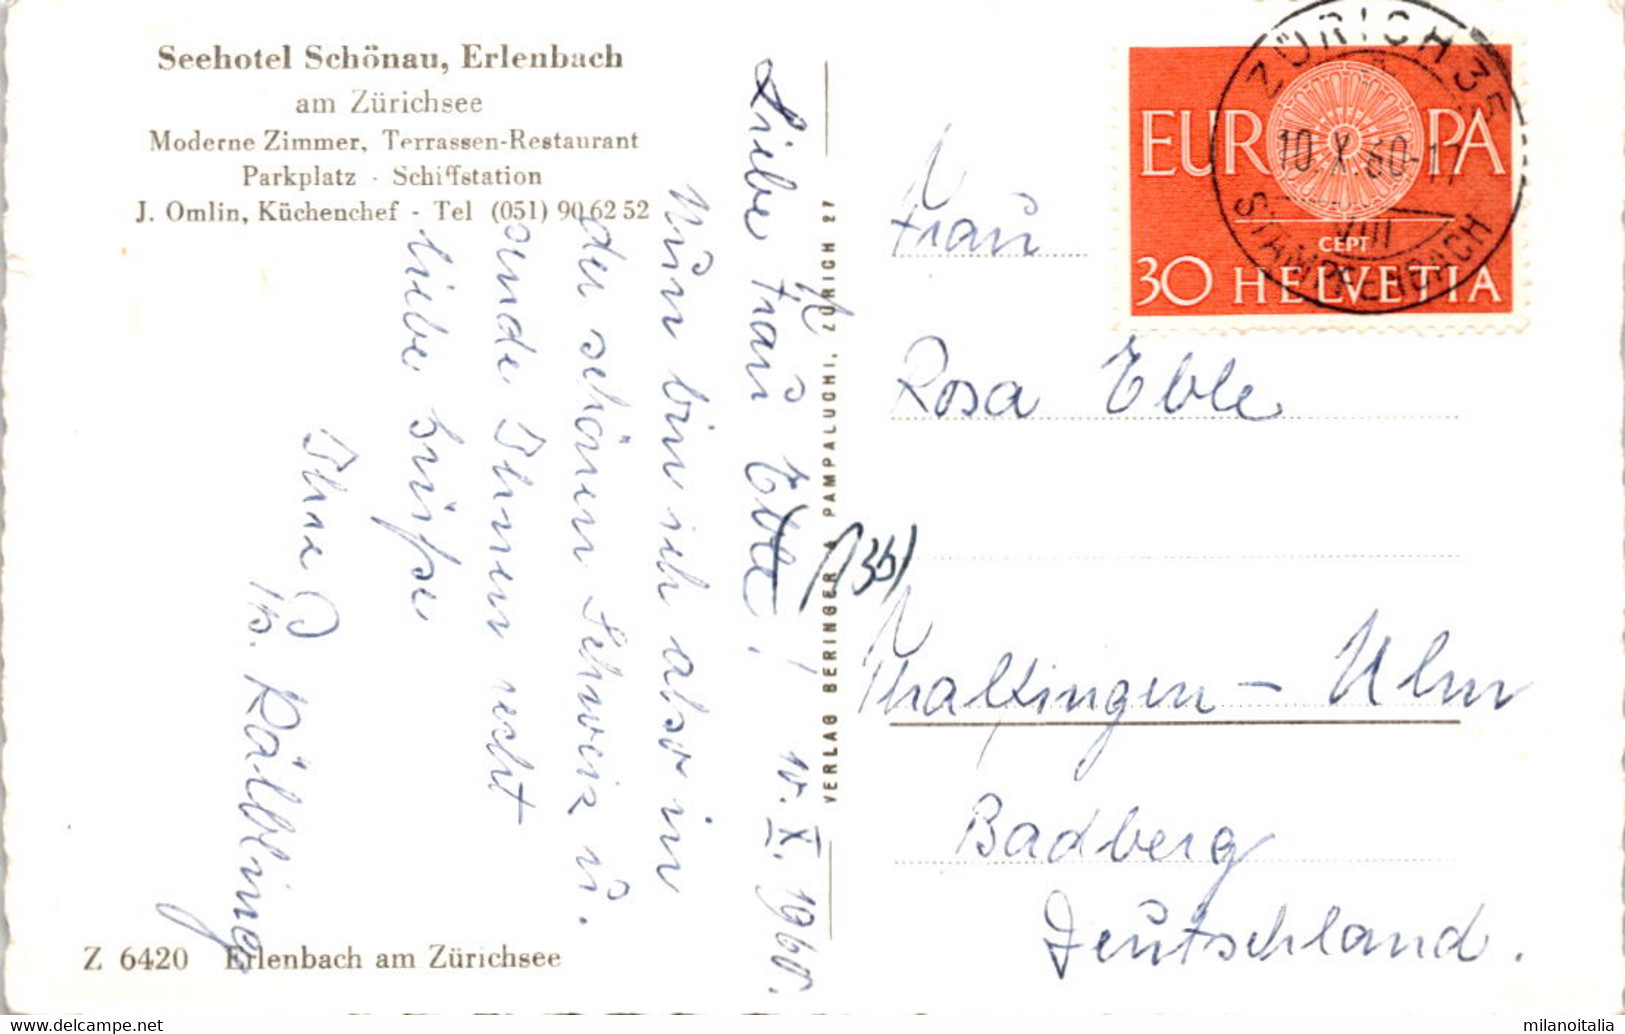 Seehotel Schönau, Erlenbach
am Zürichsee
Moderne Zimmer, Terrassen-Restaurant
Parkplatz - Schiffstation
J. Omlin, Küchenchef - Tel (051) 90 62 52
10. X. 1960.
Liebe Frau Eble!
Nun bin ich also in
der schönen Schweiz u.
sende Ihnen recht
liebe Grüße
Ihre
Kälblings
Z 6420 Erlenbach am Zürichsee
VERLAG BERINGER & PAMPALUCHI, ZÜRICH 27
EUROPA
CEPT
30 HELVETIA
ZÜRICH 35
10.X.60-17
VIII
STAMPFENBACH
Frau
Rosa Eble
(135)
Thalfingen - Ulm
Badberg
Deutschland.
milanoitalia